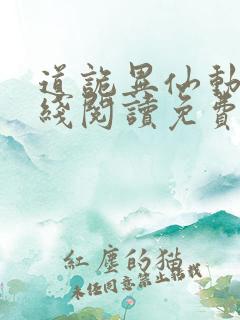 道詭異仙動
綫閱讀免費
紅塵的貓
未經同意禁止轉載